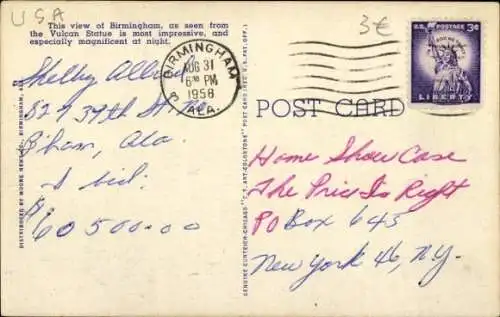 USA
This view of Birmingham, as seen from
the Vulcan Statue is most impressive, and
especially magnificent at night.
Shelby
329 39th St. No.
B'ham, Ala.
I bid.
$60500.00
DISTRIBUTED BY MOORE NEWS CO. BIRMINGHAM,
GENUINE CURTEICH-CHICAGO "C.T. ART-COLORTONE" POST CARD (REG. U.S. PAT. OFF.)
BIRMINGHAM
3
AUG 31
6 PM
1958
ALA.
3€
U.S. POSTAGE 3¢
IN GOD WE TRUST
LIBERTY
POST CARD
Home Show Case
The Price Is Right
PO Box 645
New York 46, N.Y.